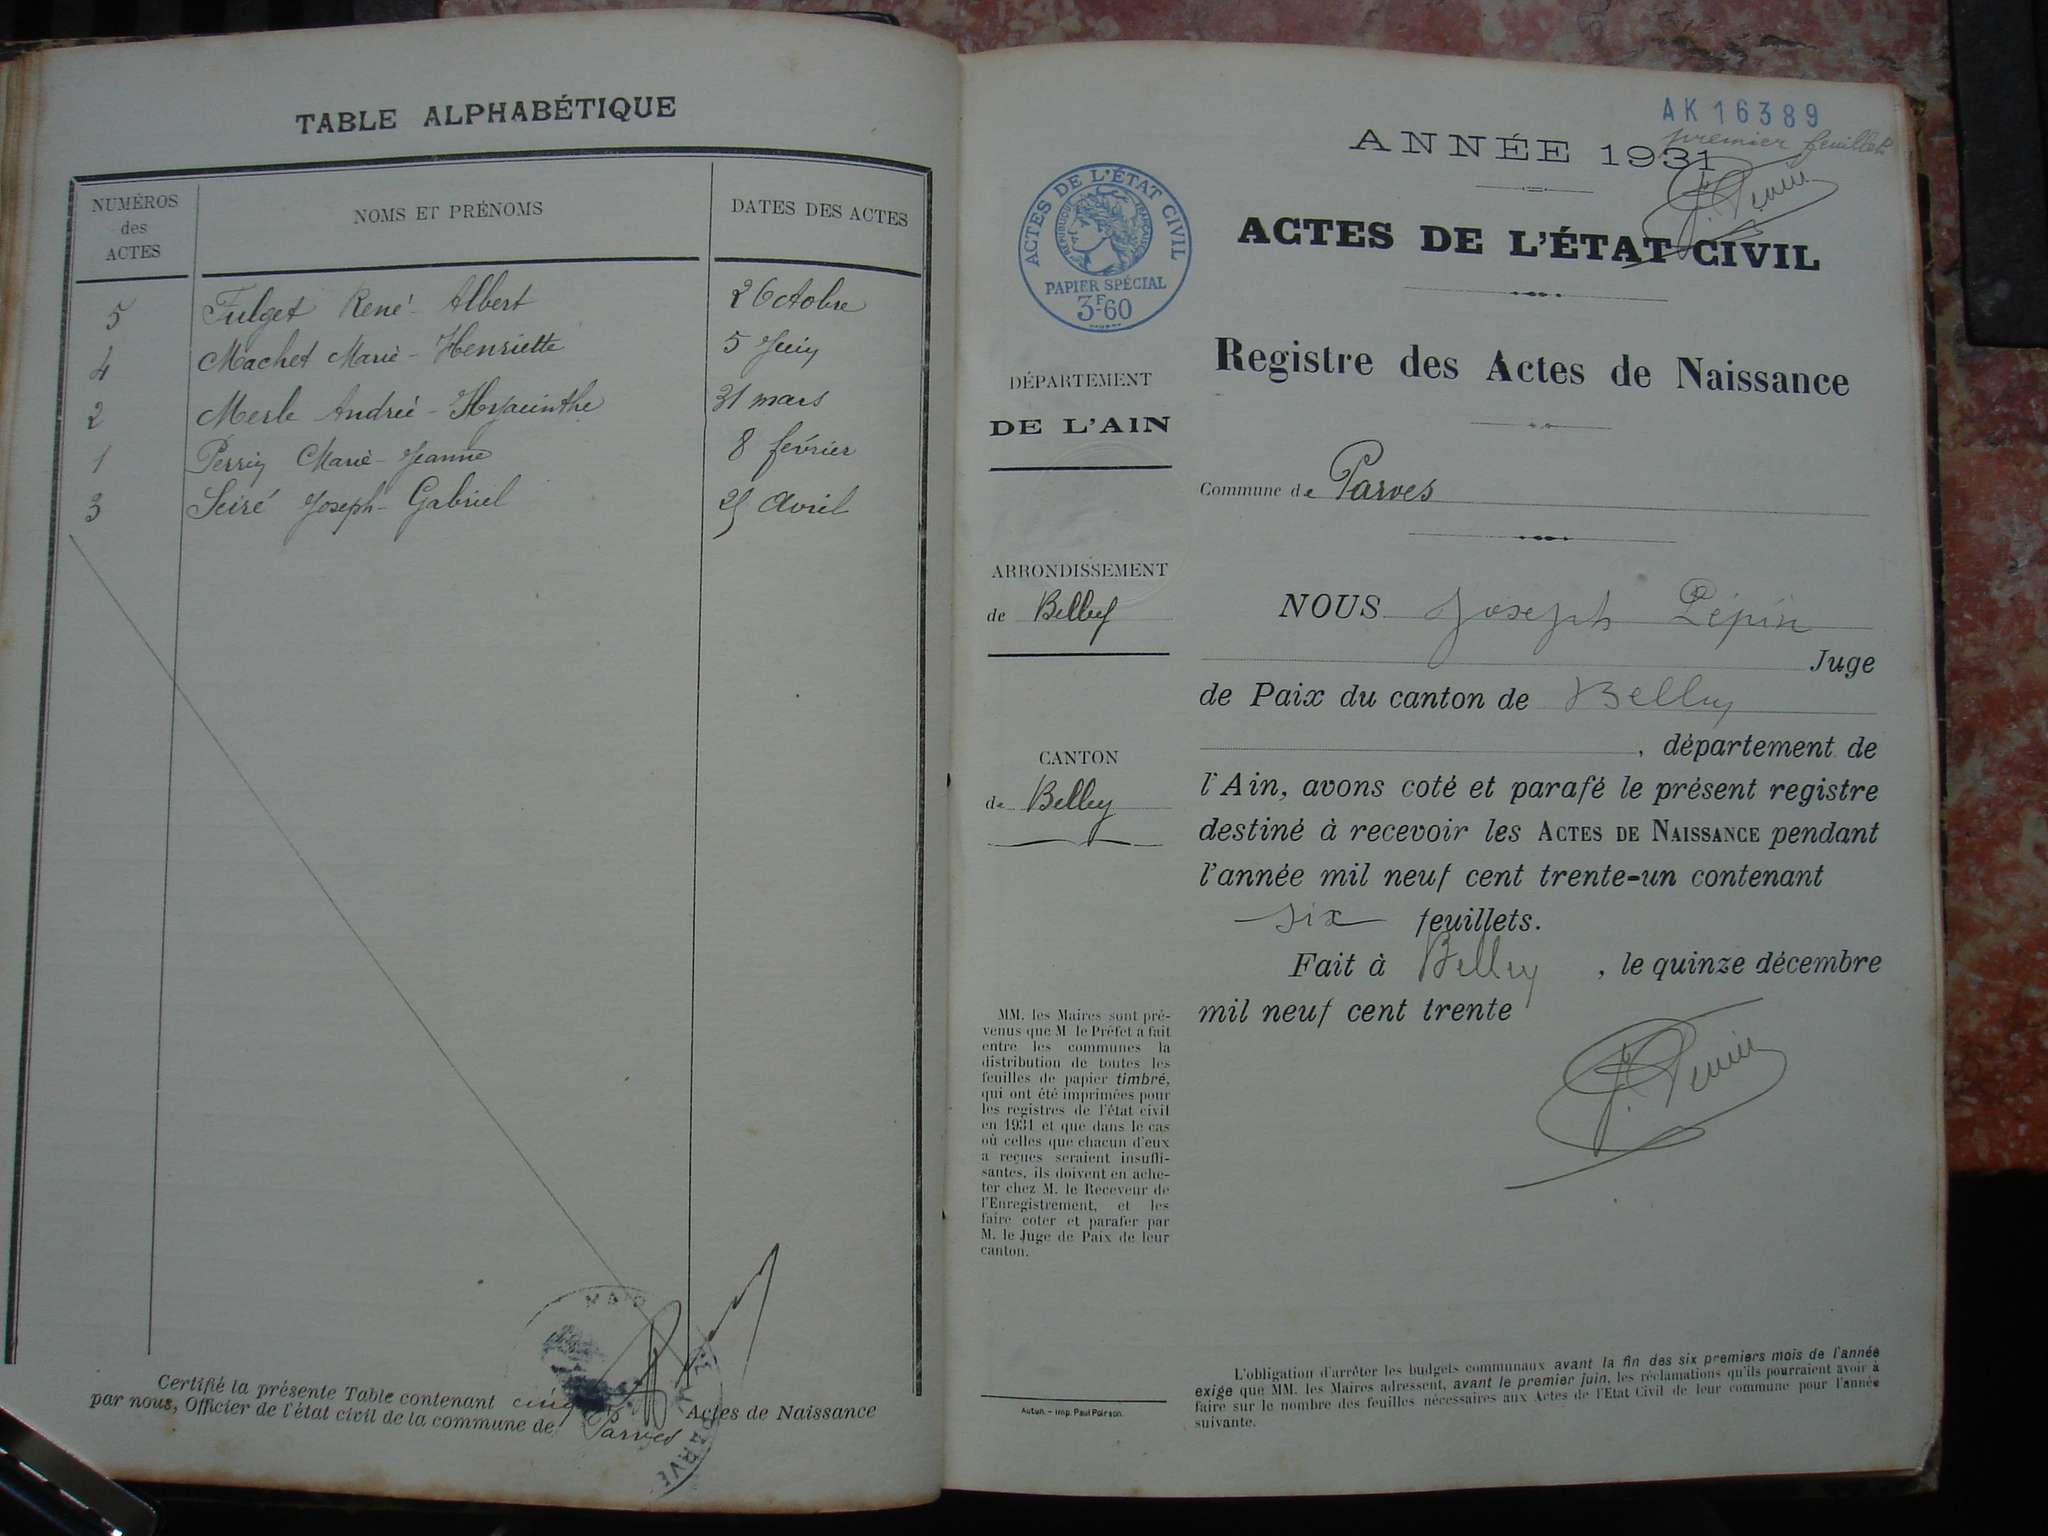 TABLE ALPHABÉTIQUE
NUMÉROS des ACTES NOMS ET PRÉNOMS DATES DES ACTES
5 Fulget René-Albert 26 octobre
4 Machet Marie-Henriette 5 Juin
2 Merle André-Hyacinthe 31 mars
1 Perrin Marie-Jeanne 8 février
3 Seiré Joseph-Gabriel 25 Avril
Certifié la présente Table contenant cinq Actes de Naissance
par nous, Officier de l'état civil de la commune de Parves
AK 16389
premier feuillet
ANNÉE 1931
ACTES DE L'ÉTAT CIVIL
RÉPUBLIQUE FRANÇAISE
PAPIER SPÉCIAL
3F.60
ACTES DE L'ÉTAT CIVIL
Registre des Actes de Naissance
DÉPARTEMENT
DE L'AIN
Commune de Parves
ARRONDISSEMENT
de Belley
CANTON
de Belley
NOUS Joseph Pépin
Juge
de Paix du canton de Belley
, département de
l'Ain, avons coté et parafé le présent registre
destiné à recevoir les ACTES DE NAISSANCE pendant
l'année mil neuf cent trente-un contenant
six feuillets.
Fait à Belley, le quinze décembre
mil neuf cent trente
MM. les Maires sont pré-
venus que M le Préfet a fait
entre les communes la
distribution de toutes les
feuilles de papier timbré,
qui ont été imprimées pour
les registres de l'état civil
en 1931 et que dans le cas
où celles que chacun d'eux
a reçues seraient insuffi-
santes, ils doivent en ache-
ter chez M. le Receveur de
l'Enregistrement, et les
faire coter et parafer par
M. le Juge de Paix de leur
canton.
Autun. - Imp. Paul Poirson.
L'obligation d'arrêter les budgets communaux avant la fin des six premiers mois de l'année
exige que MM. les Maires adressent, avant le premier juin, les réclamations qu'ils pourraient avoir à
faire sur le nombre des feuilles nécessaires aux Actes de l'État Civil de leur commune pour l'année
suivante.